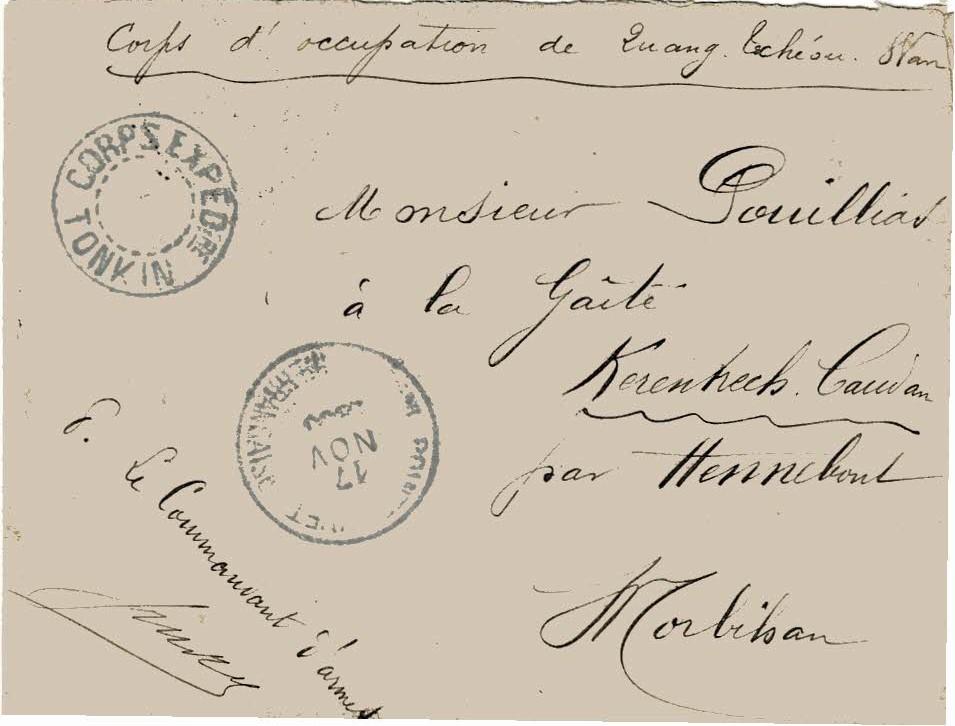 Corps d'occupation de Quang. Tchéou. Wan
CORPS EXPEDre
TONKIN
Monsieur Pouillias
à la Gaîté
Kerentrech. Caudan
par Hennebont
Morbihan
17
NOV
P. Le Commandant d'armes